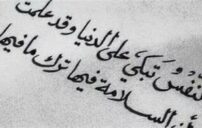 لنَّفْسُ تَبْكِي عَلَى الدنيا وقد علمت
أن السلامة فيها ترك ما فيها